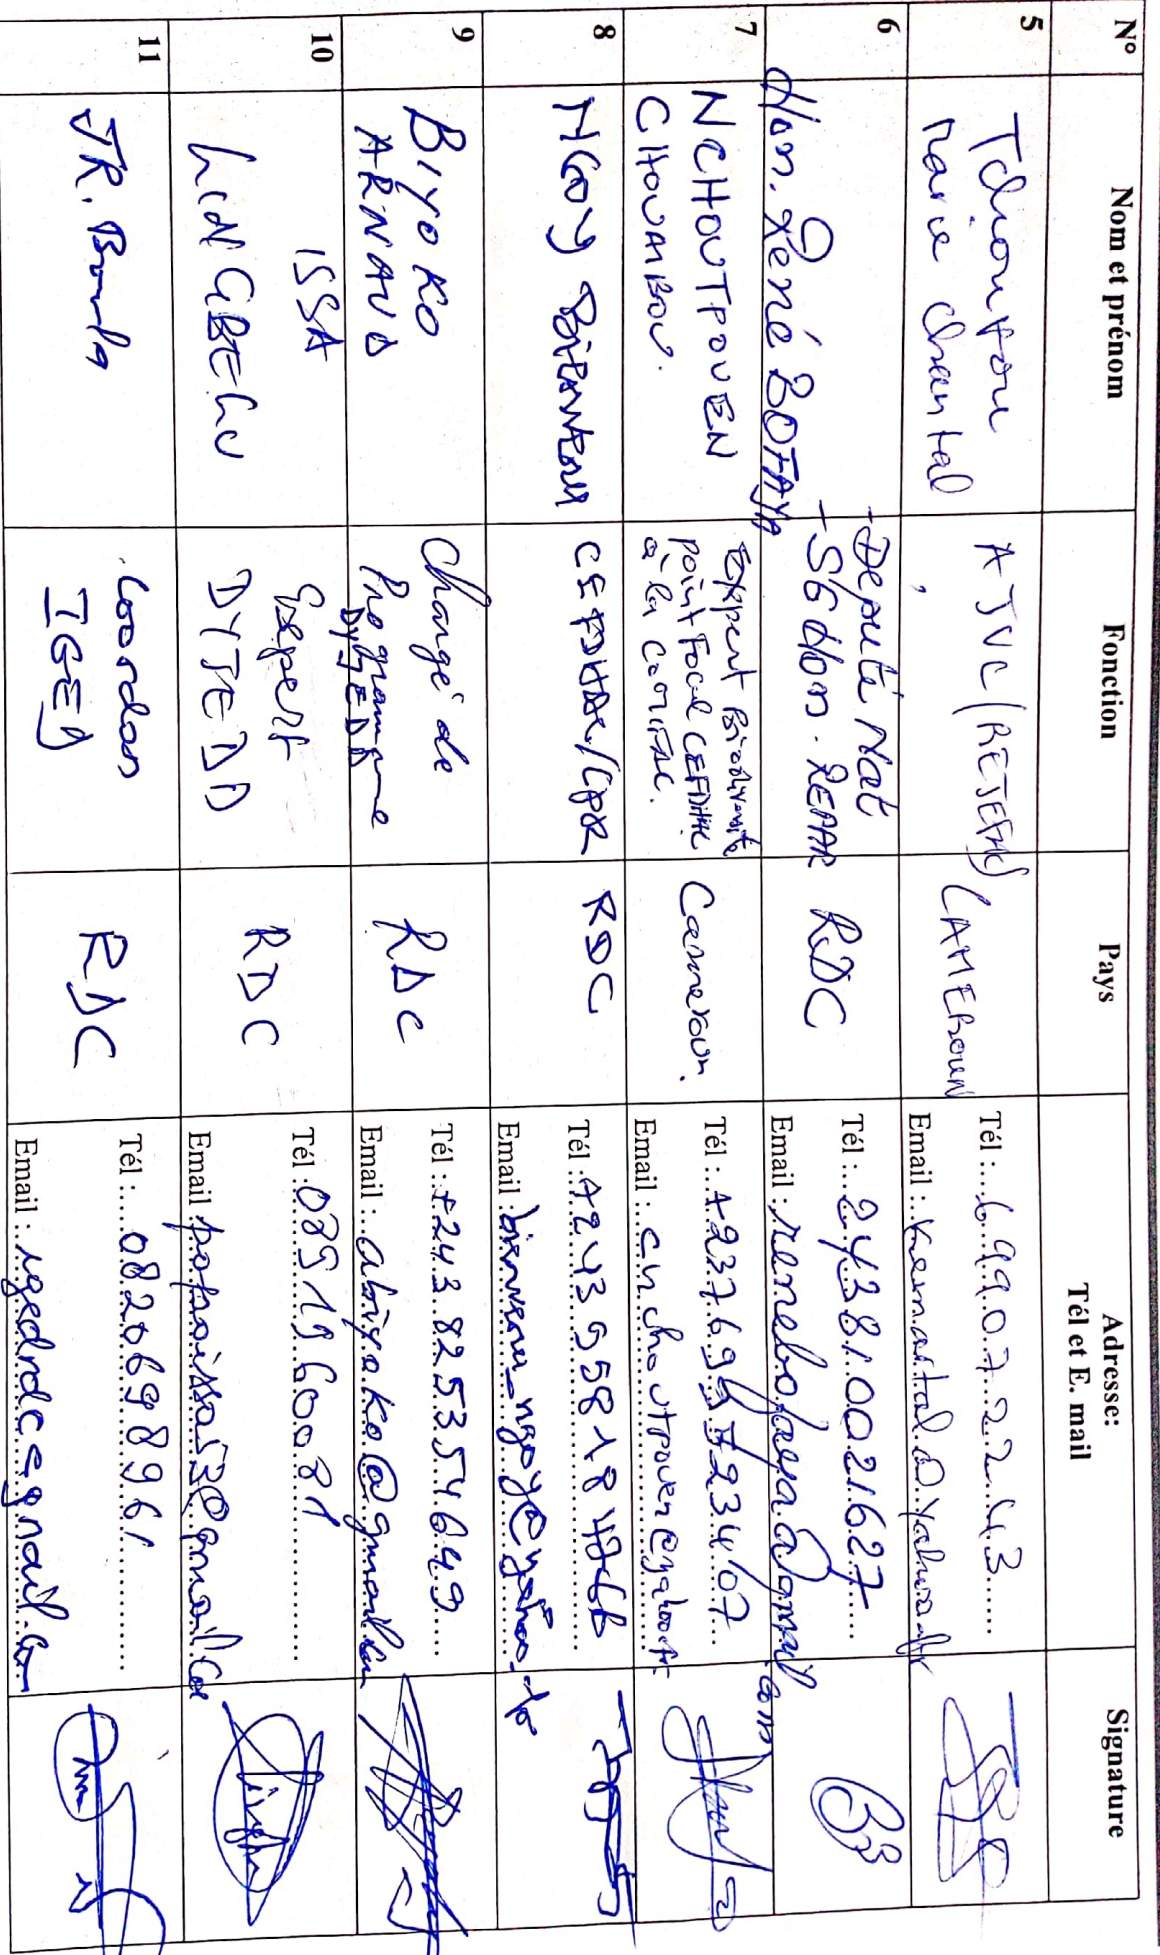 N° Nom et prénom Fonction Pays Adresse: Signature
Tél et E. mail
5
Marie chantal
AJVC (REJEFAC)
CAMEROUN
Tél : 6 99 07 22 43
Email :
6 Hon. René BOFAYA
- Deputé Nat
- SG Hon. REPAR
RDC
Tél : 243 81 00 21 627
Email : renebofaya@gmail.com
7 NCHOUTPOUEN
CHOUAIBOU.
Expert Biodiversité
point Focal CEFDHAC
à la COMIFAC.
Cameroun.
Tél : +237 699 723407
Email : cnchoutpouen@yahoo.fr
8 NGOY
CEFDHAC/CPR
RDC
Tél :
Email : bienvenu_ngoy@yahoo.fr
9 BIYOKO
ARNAUD
Chargé de
Programme
DYJEDD
RDC
Tél : +243 825354649
Email : abiyoko@gmail.com
10 ISSA
LINGBELU
Expert
DYJEDD
RDC
Tél :
Email :
11 JR. Bomba
Coordon
IGED
RDC
Tél : 0820698961
Email : igedrdc@gmail.com